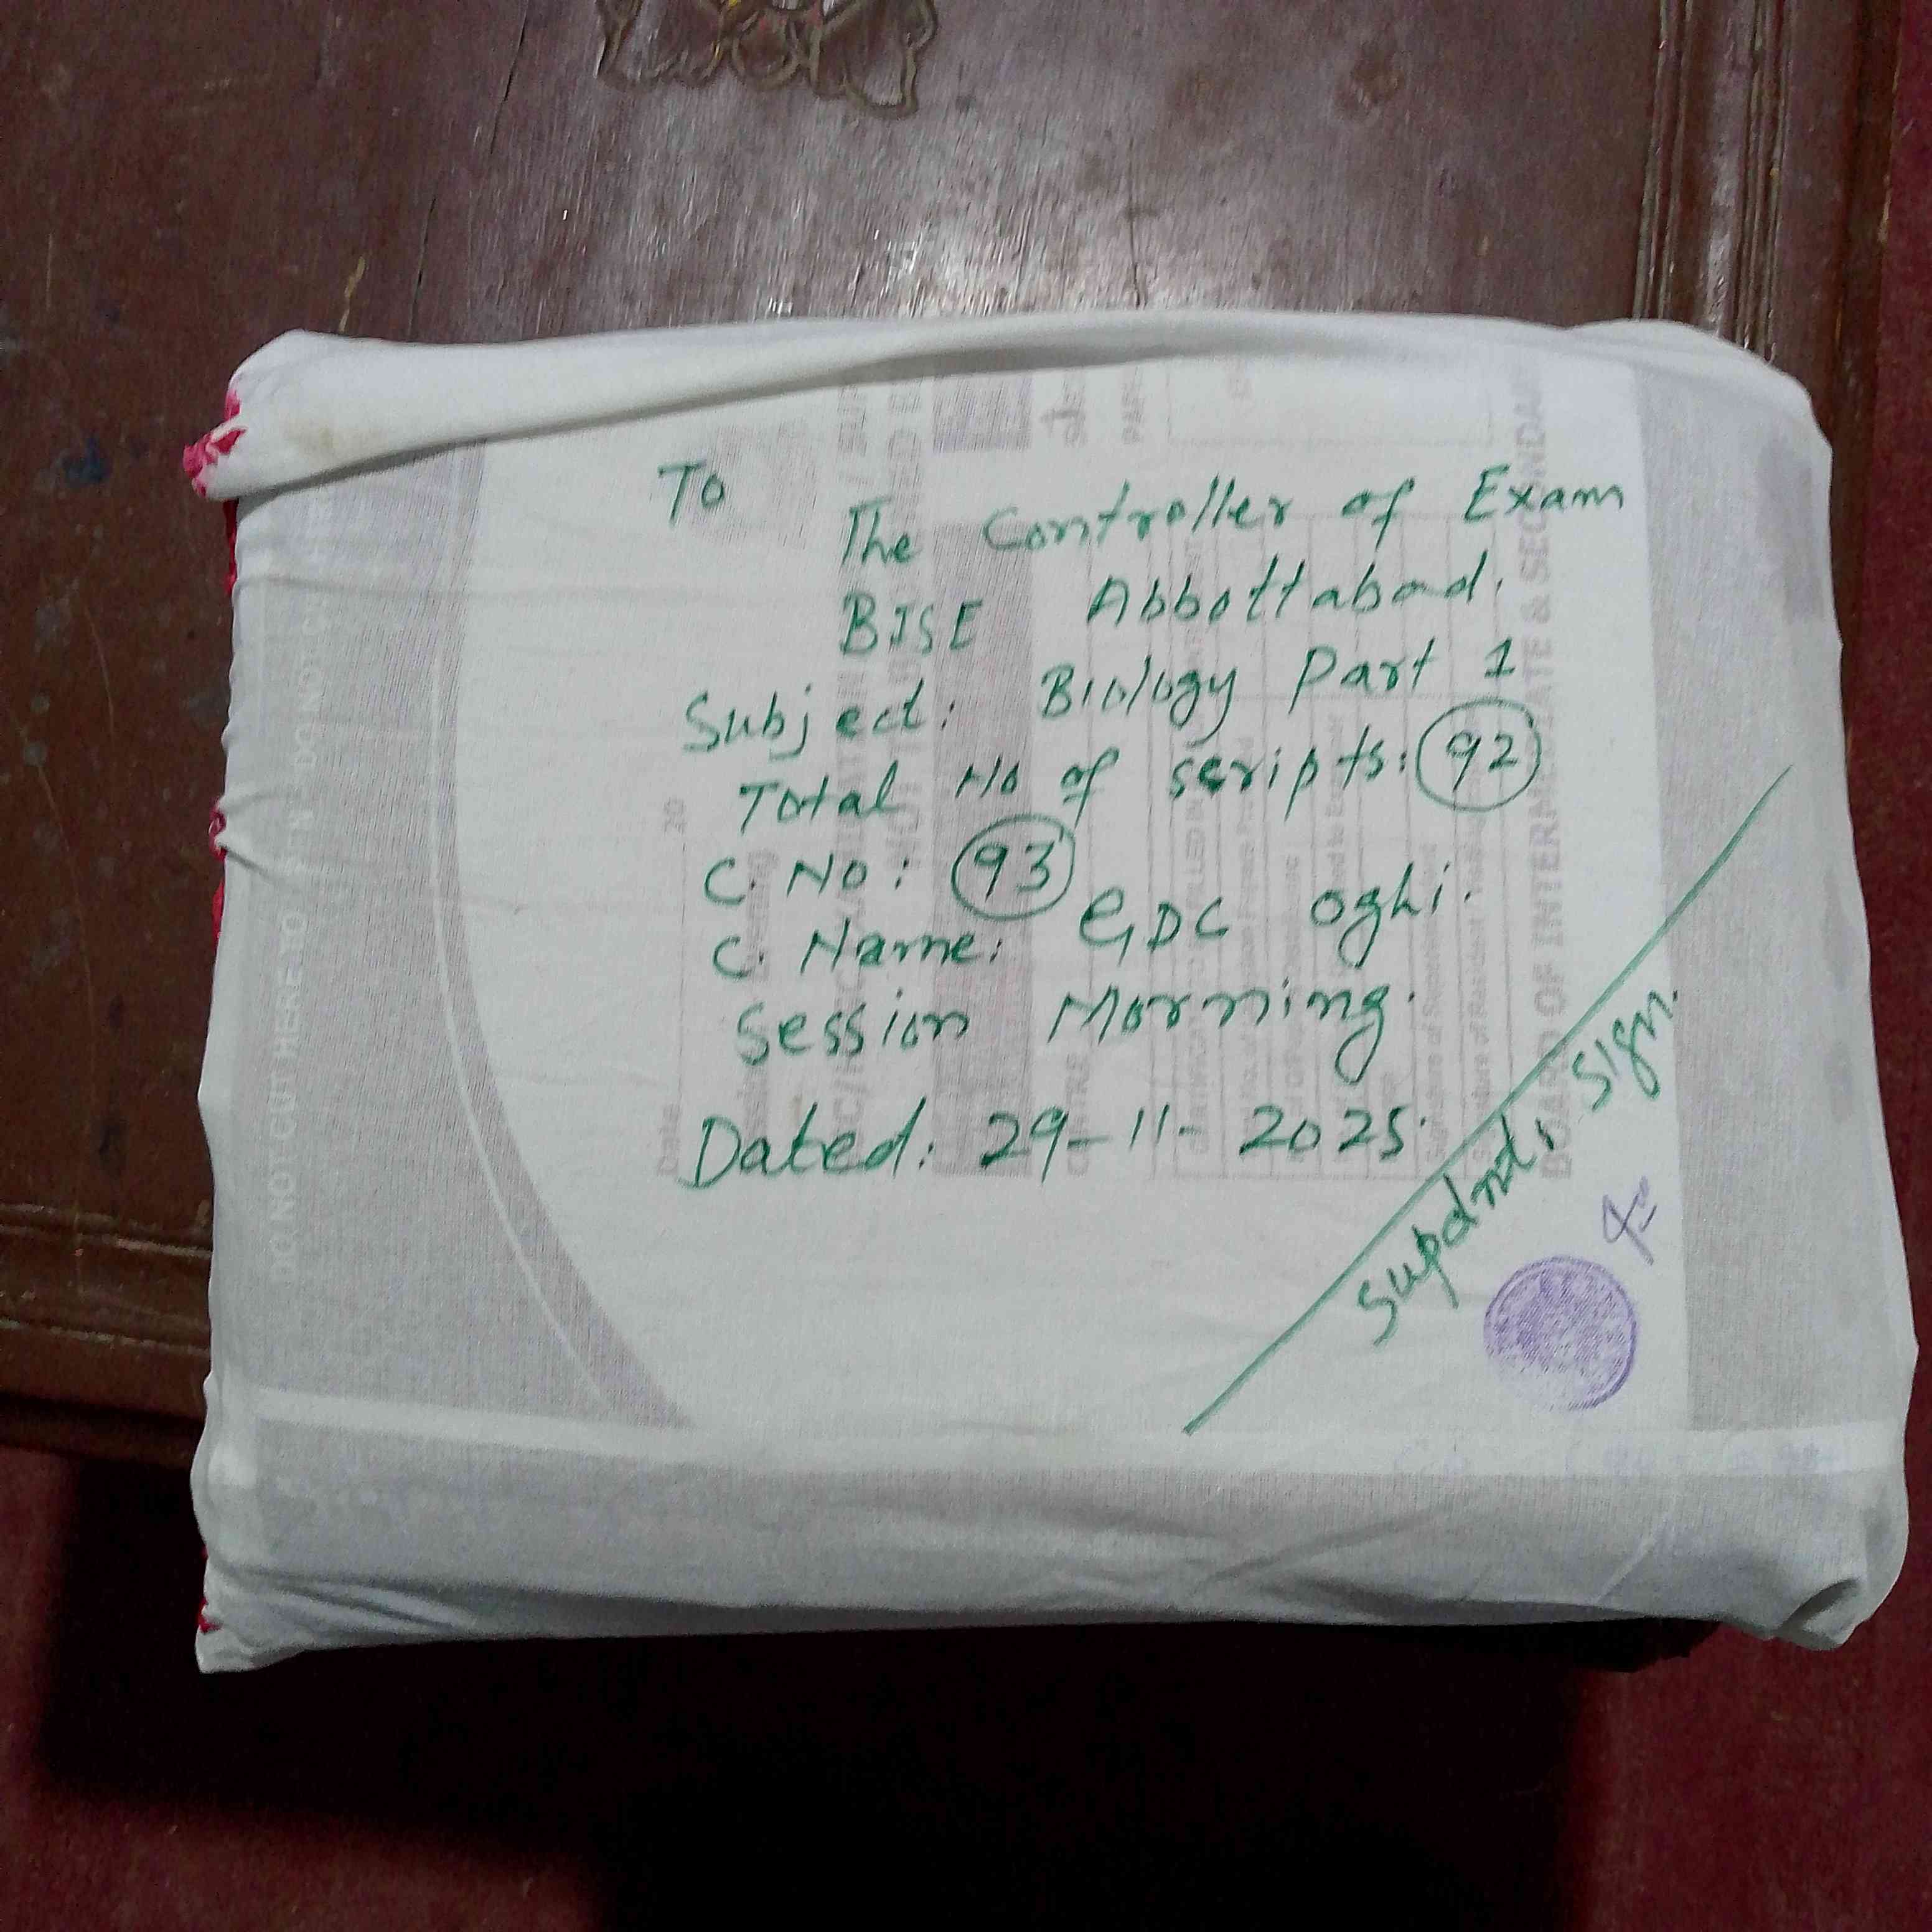 To
The Controller of Exam
BISE Abbottabad.
Subject: Biology Part 1
Total No of scripts: 92
C. No: 93
C. Name: GDC Oghi.
Session Morning.
Dated: 29-11-2025.
Supdnt, Sign.
DO NOT CUT HERE
DO NOT C
Date 20
BOARD OF INTERMEDIATE & SECONDAR